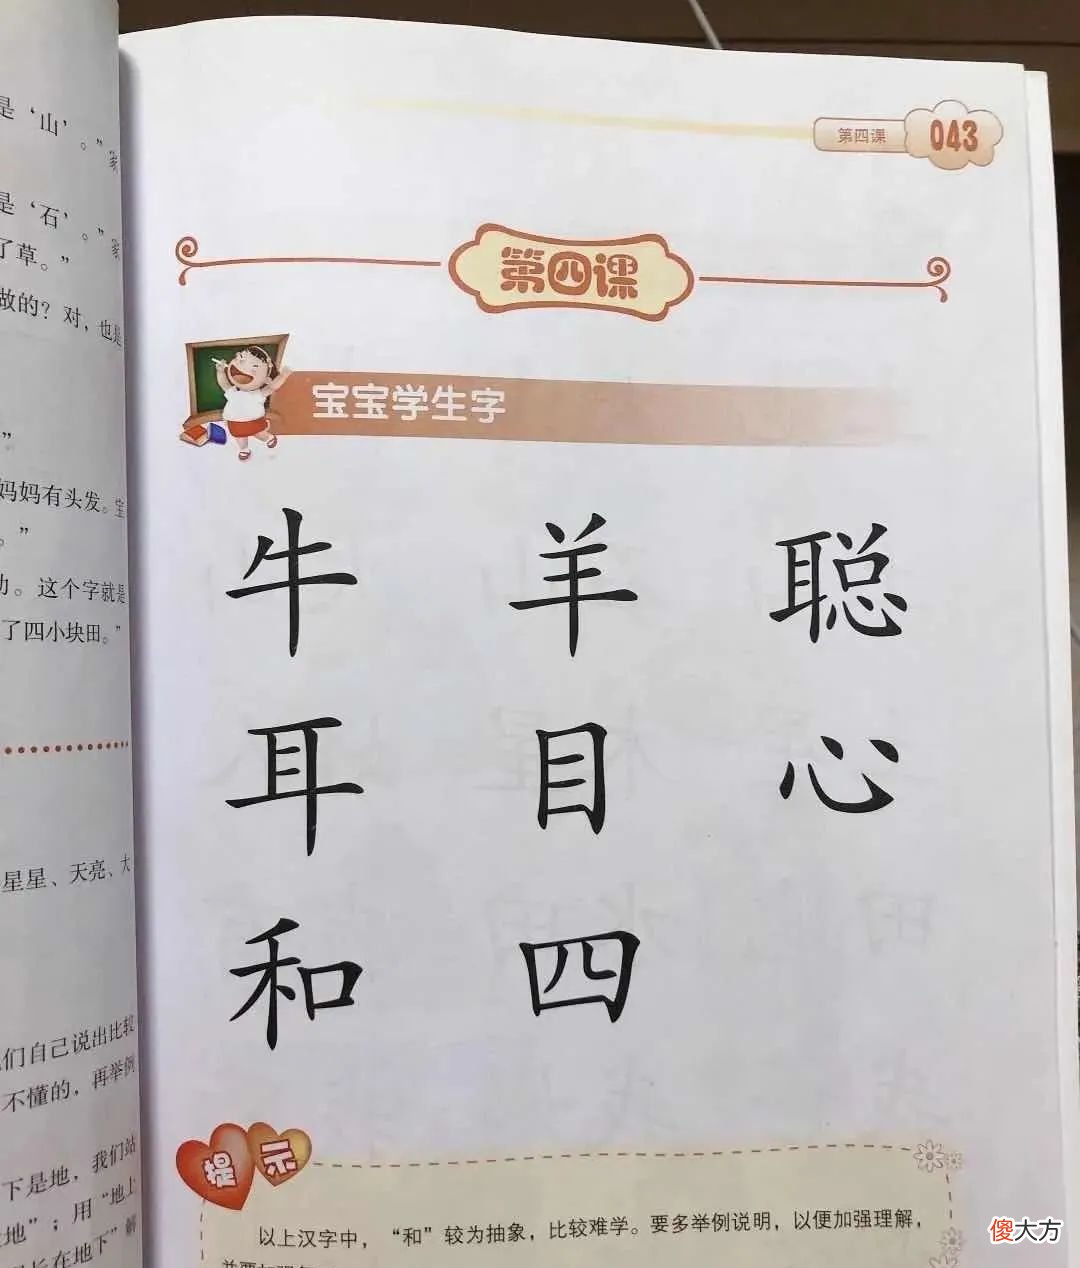 是‘山’。”
是‘石’。”
了草。”
做的？对，也是
”
妈妈有头发。宝
。”
力。这个字就是
了四小块田。”
星星、天亮、大
们自己说出比较
不懂的，再举例
下是地，我们站
地”；用“地上
长在地下”解
第四课
043
第四课
宝宝学生字
牛 羊 聪
耳 目 心
和 四
提示
以上汉字中，“和”较为抽象，比较难学。要多举例说明，以便加强理解，
傻大方